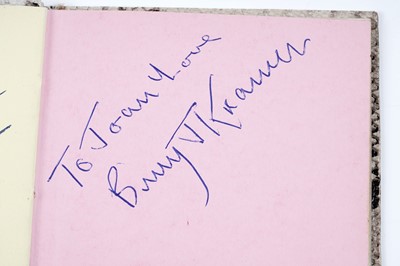 To Joan Love
Billy J Kramer